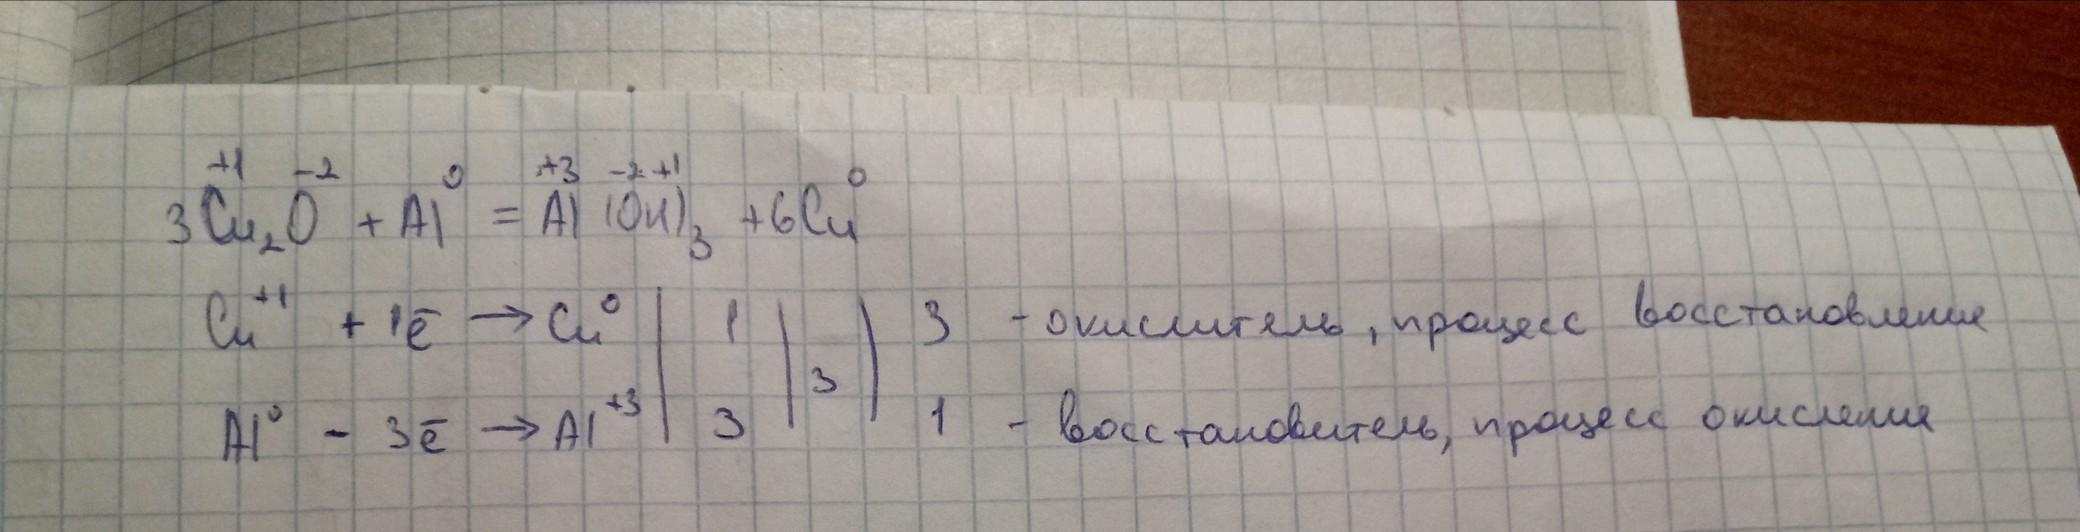 3Cu₂⁺¹O⁻² + Al⁰ = Al⁺³(O⁻²H⁺¹)₃ + 6Cu⁰
Cu⁺¹ + 1ē → Cu⁰ | 1 | | 3 - окислитель, процесс восстановление
3
Al⁰ - 3ē → Al⁺³ | 3 | | 1 - восстановитель, процесс окисление